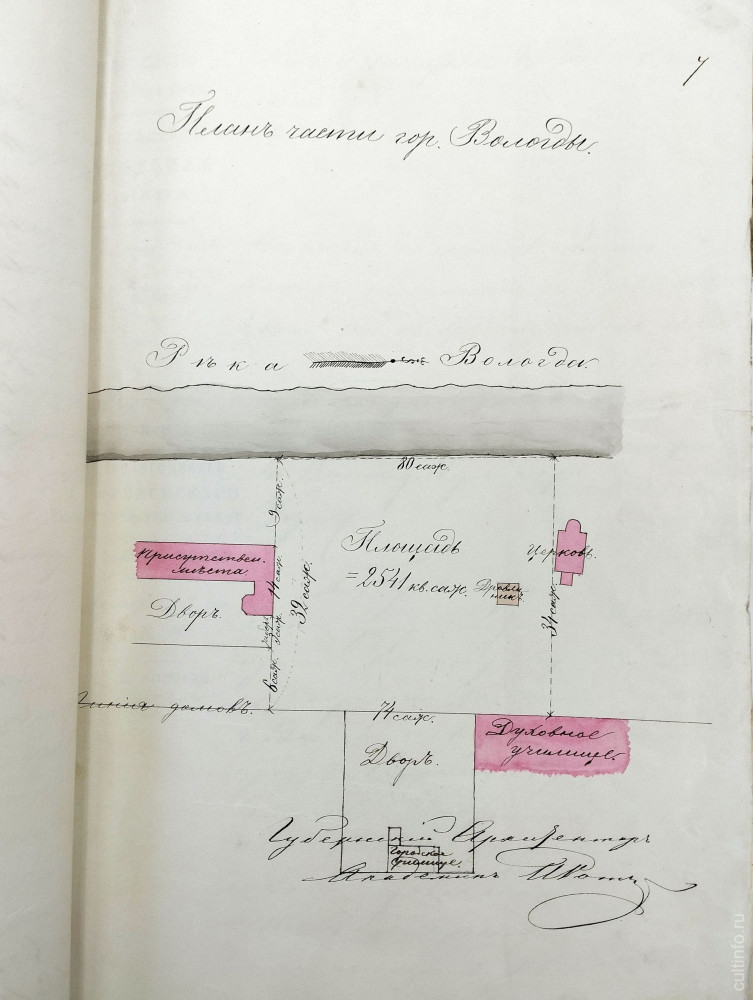 7
Планъ части гор. Вологды.
Рѣка Вологда.
80 саж.
9 саж.
Площадь
=2541 кв. саж.
Присутствен.
мѣста.
14 саж.
32 саж.
Церковь.
Дровя
никъ
34 саж.
Дворъ.
6 саж.
Линія домовъ.
74 саж.
Духовное
училище.
Дворъ.
Губернскій Архитекторъ
Городское
училище.
Академикъ
cultinfo.ru